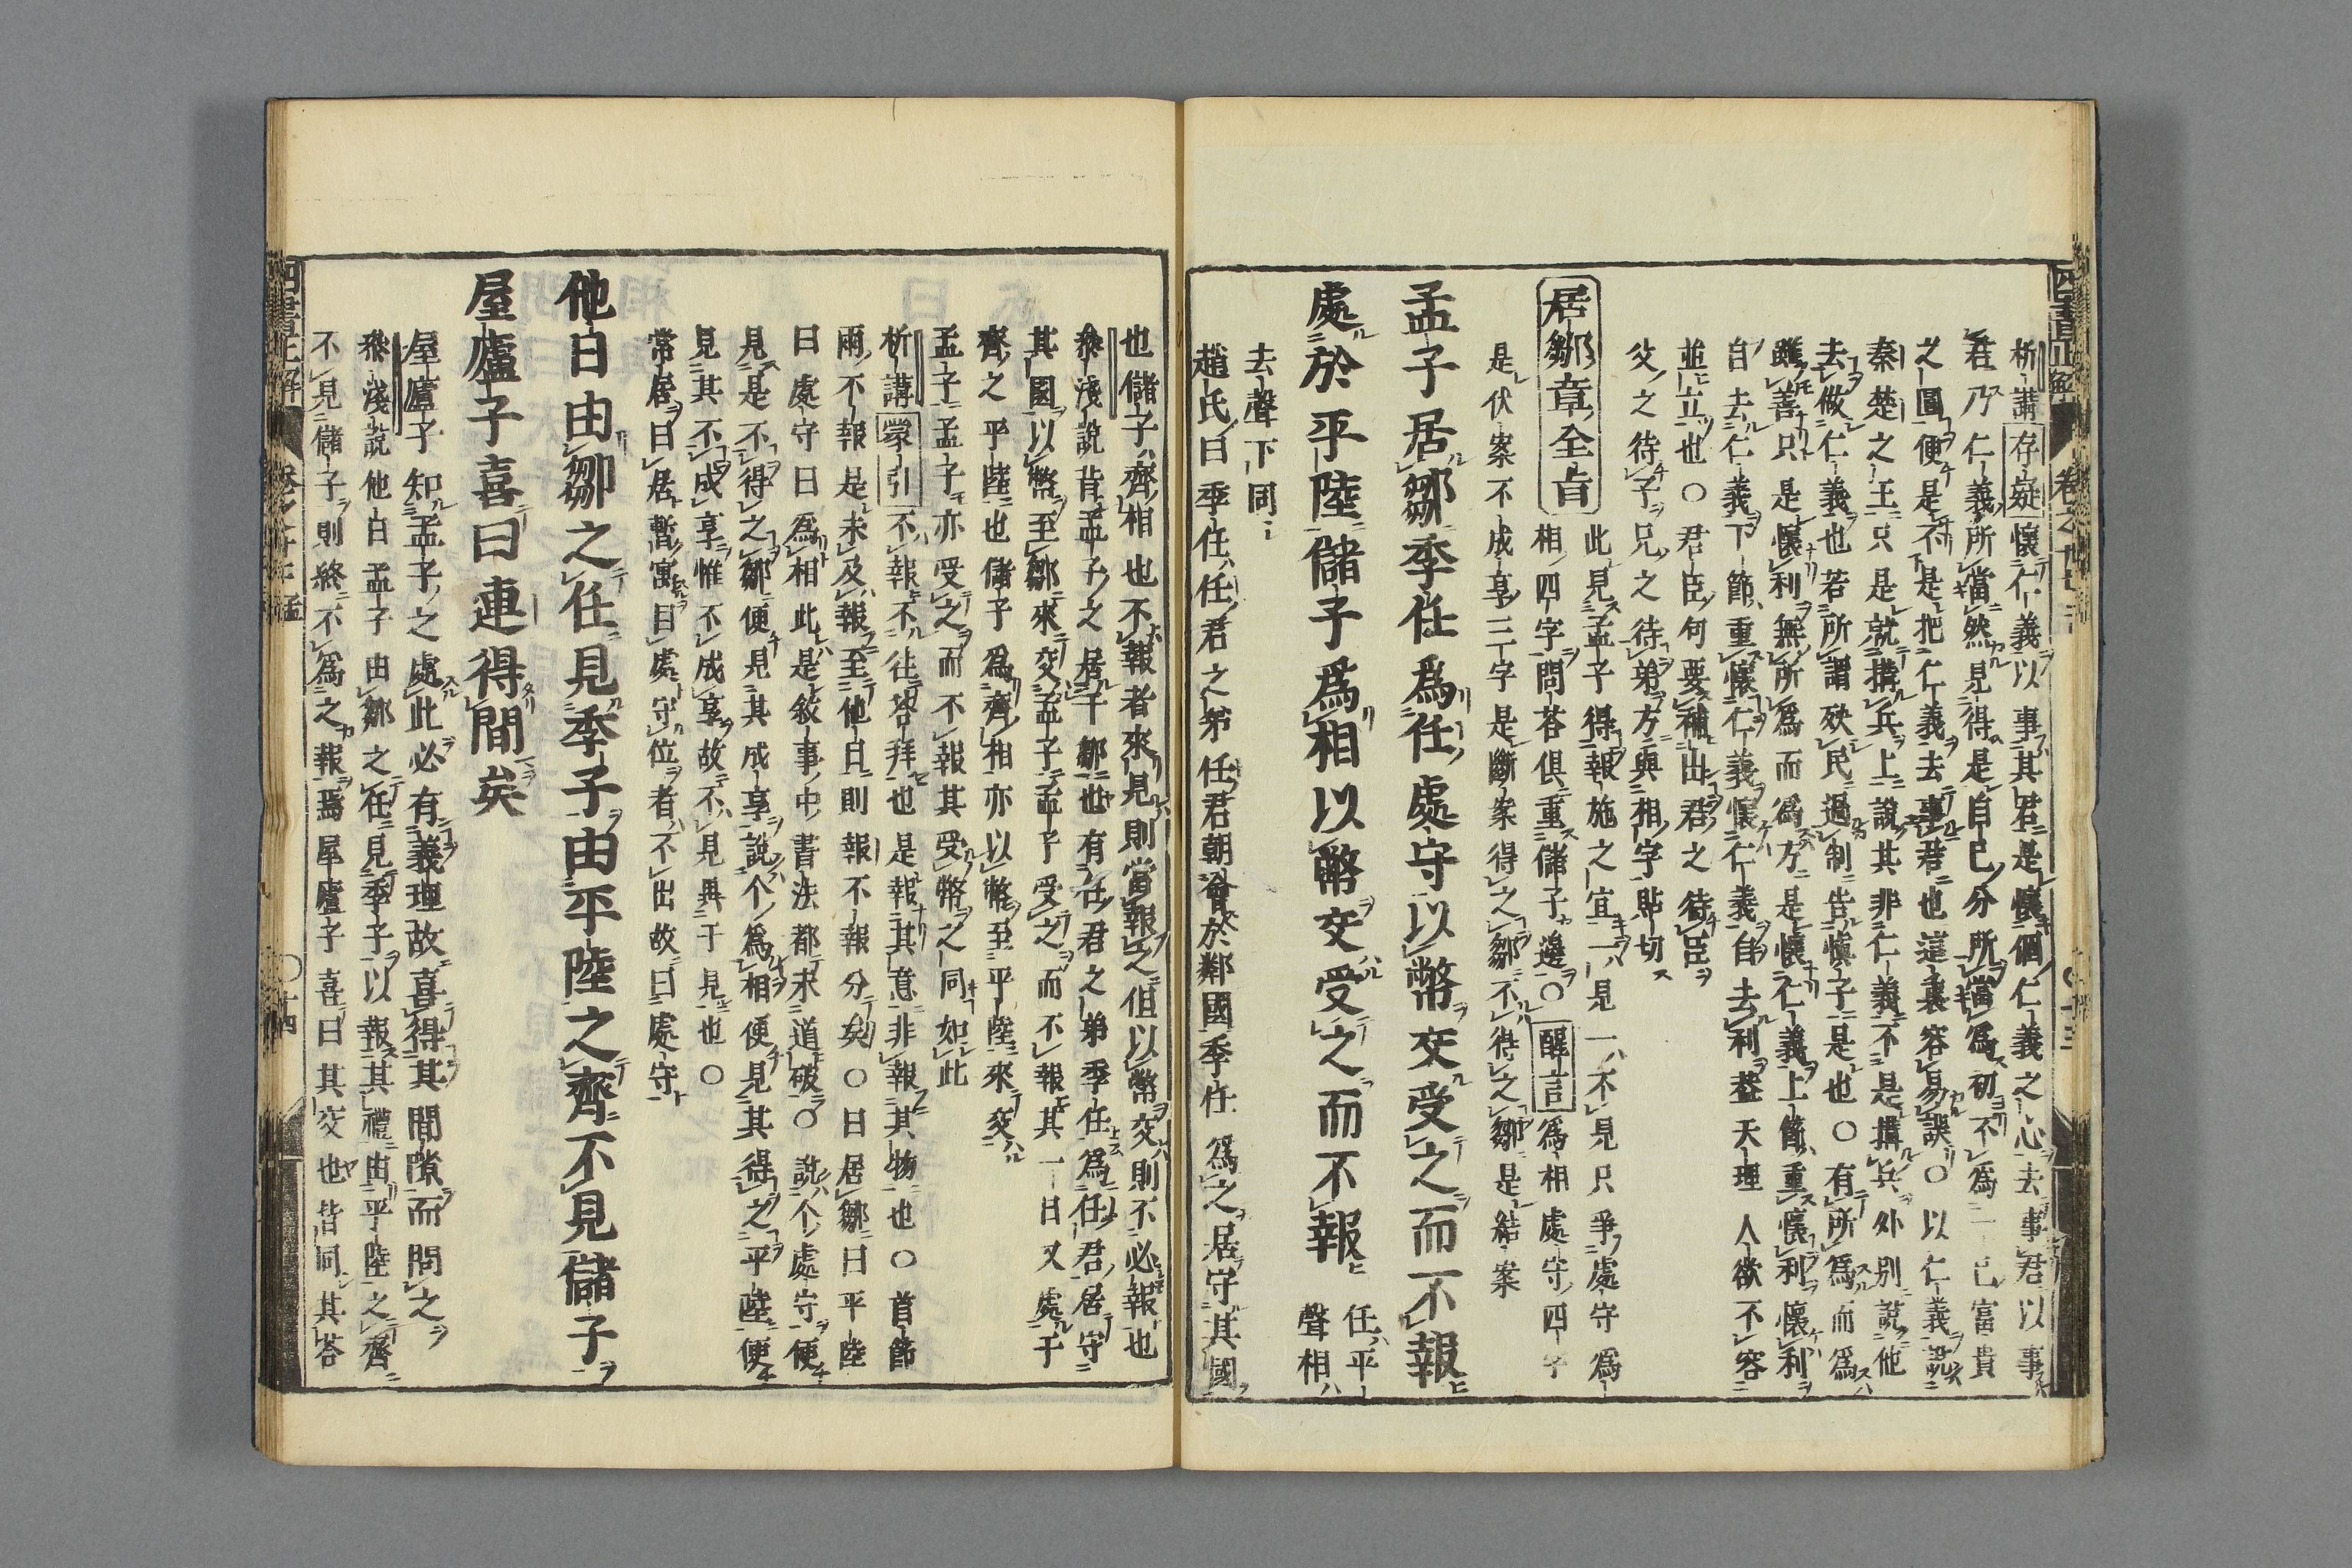 析講存疑懷仁義以事其君是懷個仁義之心去事君以事
君乃仁義所當然見得是自己分所當爲初不爲一己富貴
之圖便是不是把仁義去事君也這裏容易誤〇以仁義說
秦楚之王只是就搆兵上說其非仁義不是搆兵外別說他
去做仁義也若所謂殃民過制告愼子是也〇有所爲而爲
雖善只是懷利無所爲而爲方是懷仁義上節重懷利懷利
自去仁義下節重懷仁義懷仁義自去利蓋天理人欲不容
並立也〇君臣何要補出君之待臣
父之待子兄之待弟方與相字貼切
居鄒章全旨
此見孟子得報施之宜一見一不見只爭處守爲
相四字問荅俱重儲子邊〇醒言爲相處守四字
是伏案不成享三字是斷案得之鄒不得之鄒是結案
孟子居鄒季任爲任處守以幣交受之而不報
處於平陸儲子爲相以幣交受之而不報
任平
聲相
去聲下同
趙氏曰季任任君之弟任君朝會於鄰國季任爲之居守其國
也儲子齊相也不報者來見則當報之但以幣交則不必報也
叅淺說昔孟子之居于鄒也有任君之弟季任爲任君居守
其國以幣至鄒來交孟子孟子受之而不報其一日又處于
齊之平陸也儲子爲齊相亦以幣至平陸來交
孟子孟子亦受之而不報其受幣之同如此
析講蒙引不報不往荅拜也是報其意非報其物也〇首節
兩不報是未及報至他日則報不報分矣〇曰居鄒曰平陸
曰處守曰爲相此是敘事中書法都未道破〇說个處守便
見是不得之鄒便見其成享說个爲相便見其得之平陸便
見其不成享惟不成享故不見再于見也〇
常居曰居暫寓曰處守位者不出故曰處守
他日由鄒之任見季子由平陸之齊不見儲子
屋廬子喜曰連得間矣
屋廬子知孟子之處此必有義理故喜得其間隙而問之
叅淺說他日孟子由鄒之任見季子以報其禮由平陸之齊
不見儲子則終不爲之報焉屋廬子喜曰其交也皆同其荅